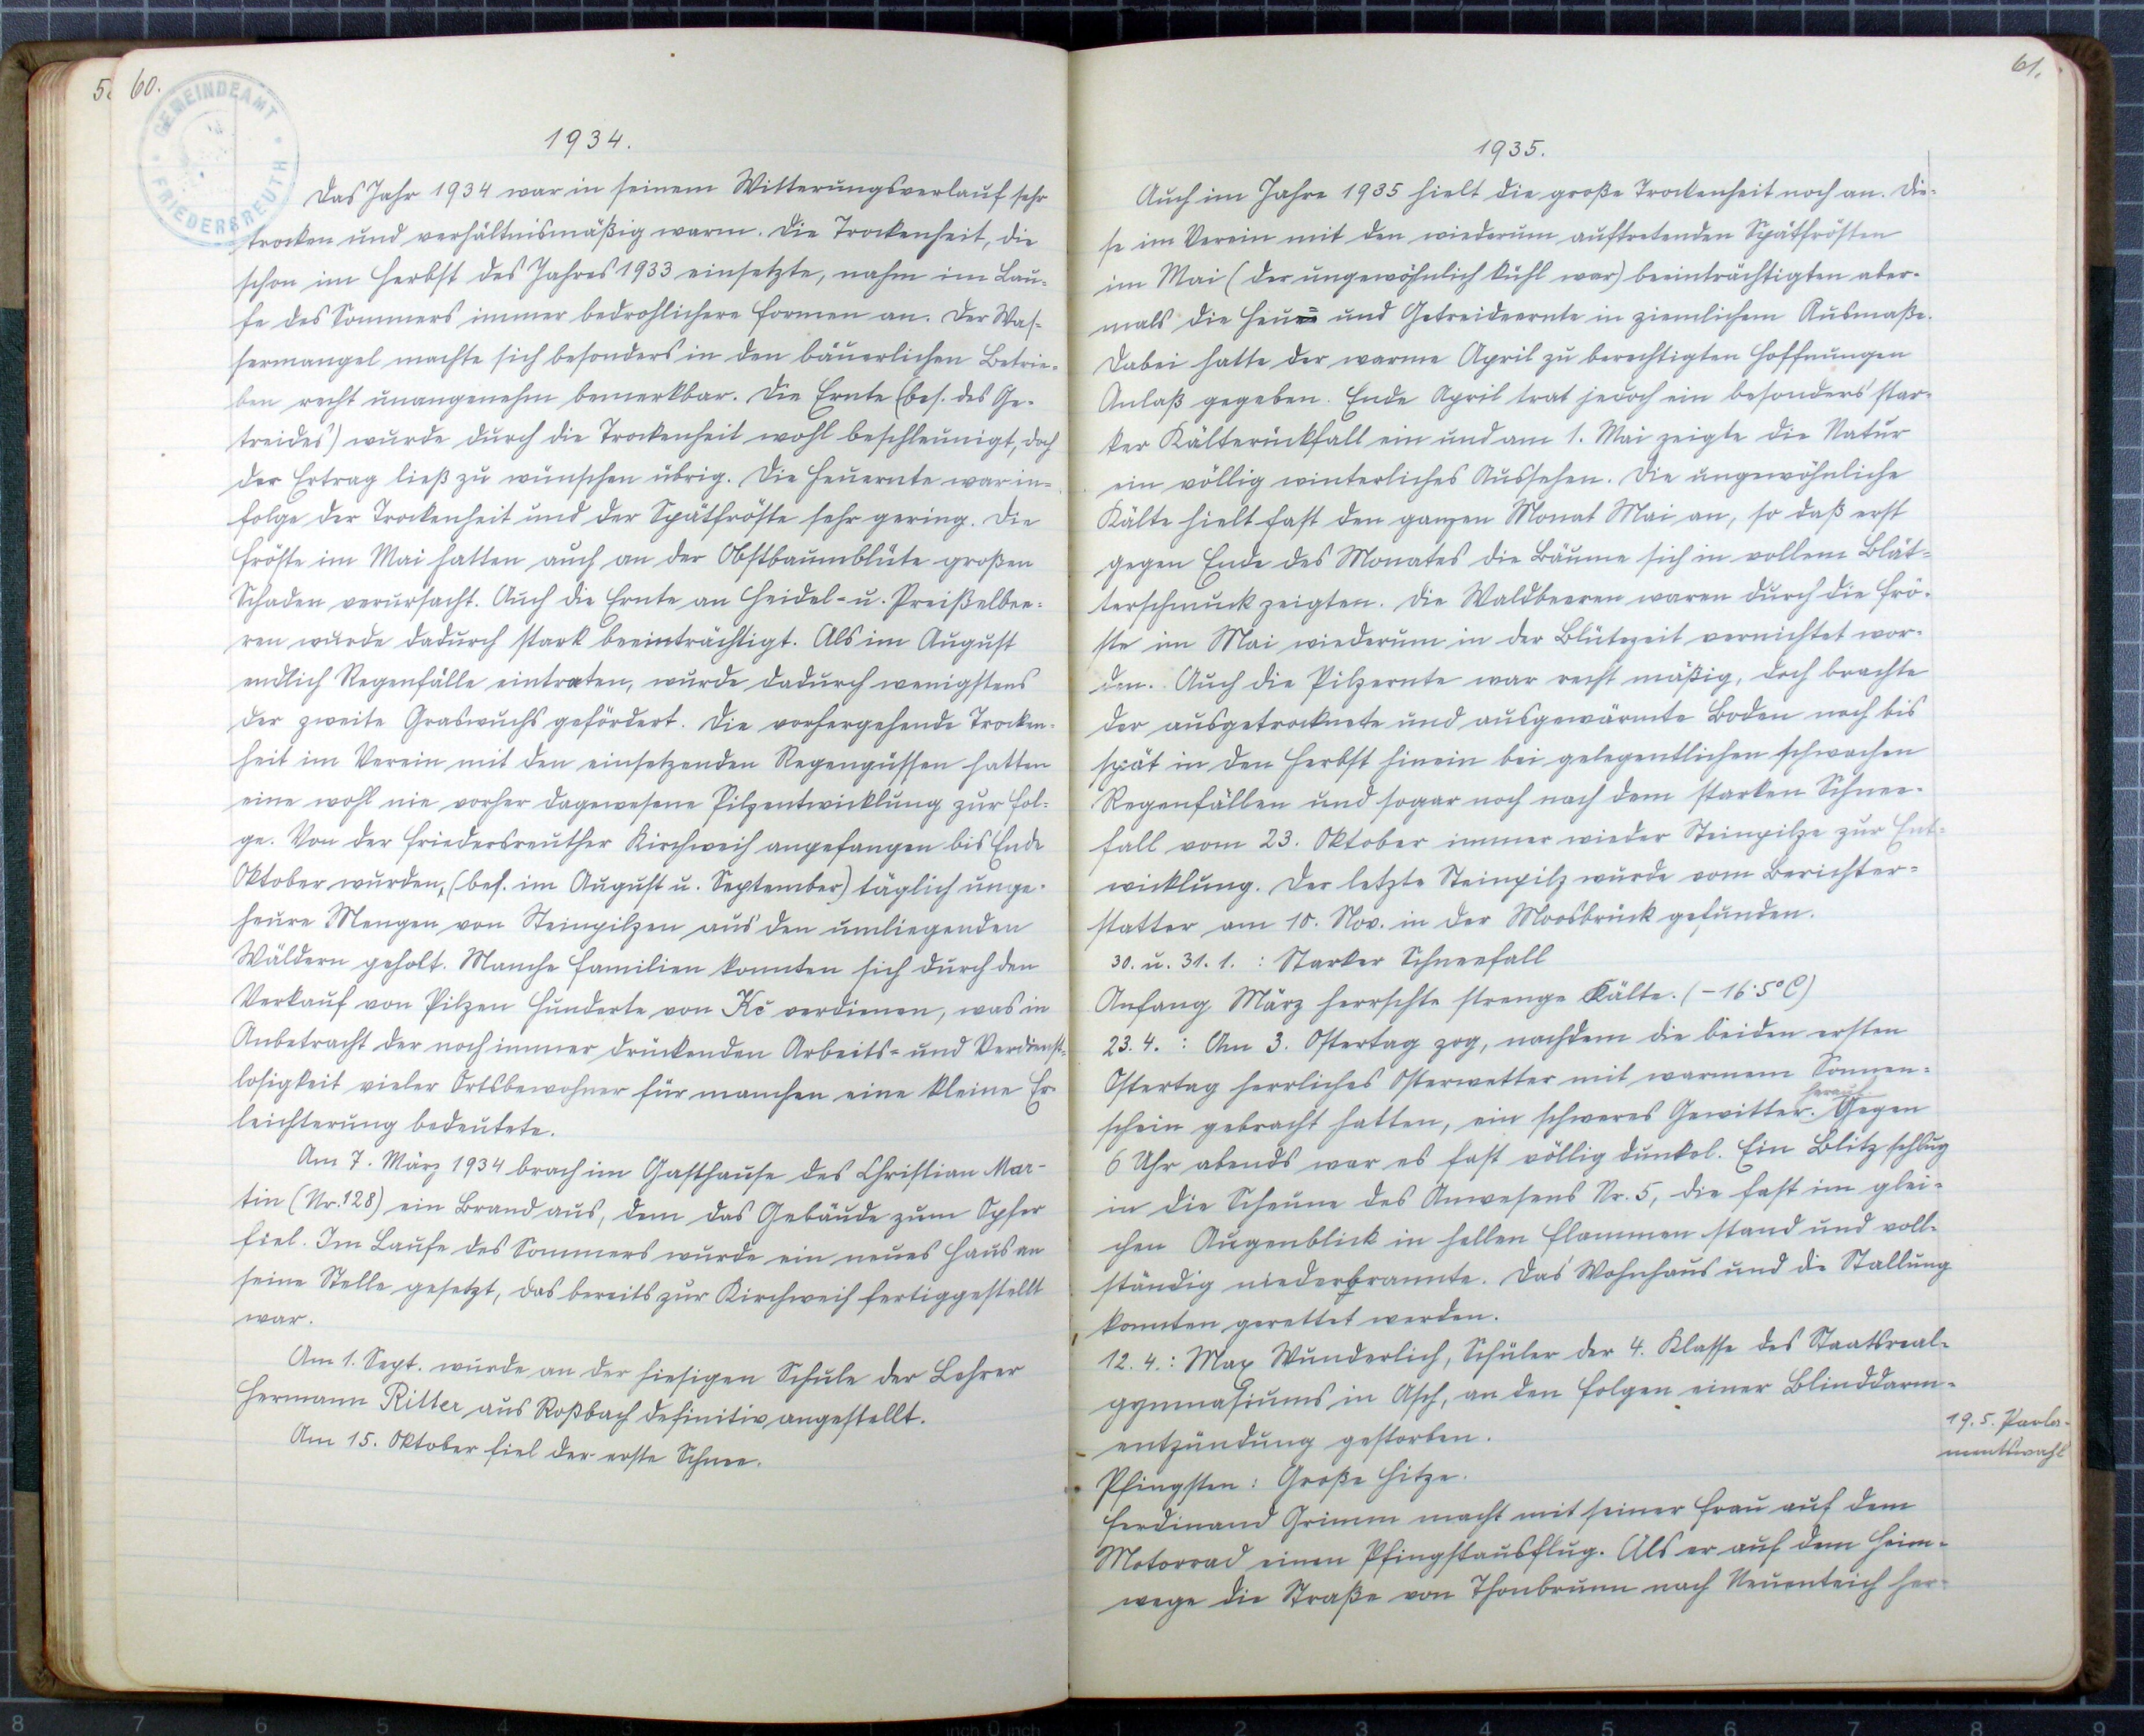 60.
GEMEINDEAMT
FRIEDERSREUTH
1934.
Das Jahr 1934 war in seinem Witterungsverlauf sehr
trocken und verhältnismäßig warm. Die Trockenheit, die
schon im Herbst des Jahres 1933 einsetzte, nahm im Lau-
fe des Sommers immer bedrohlichere Formen an. Der Was-
sermangel machte sich besonders in den bäuerlichen Betrie-
ben recht unangenehm bemerkbar. Die Ernte (bes. des Ge-
treides) wurde durch die Trockenheit wohl beschleunigt, doch
der Ertrag ließ zu wünschen übrig. Die Heuernte war in-
folge der Trockenheit und der Spätfröste sehr gering. Die
Fröste im Mai hatten auch an der Obstbaumblüte großen
Schaden verursacht. Auch die Ernte an Heidel- u. Preißelbee-
ren wurde dadurch stark beeinträchtigt. Als im August
endlich Regenfälle eintraten, wurde dadurch wenigstens
der zweite Graswuchs gefördert. Die vorhergehende Trocken-
heit im Verein mit den einsetzenden Regengüssen hatten
eine wohl nie vorher dagewesene Pilzentwicklung zur Fol-
ge. Von der Friedersreuther Kirchweih angefangen bis Ende
Oktober wurden, (bes. im August u. September) täglich unge-
heure Mengen von Steinpilzen aus den umliegenden
Wäldern geholt. Manche Familien konnten sich durch den
Verkauf von Pilzen Hunderte von Kč verdienen, was in
Anbetracht der noch immer drückenden Arbeits- und Verdienst-
losigkeit vieler Ortsbewohner für manchen eine kleine Er-
leichterung bedeutete.
Am 7. März 1934 brach im Gasthause des Christian Mar-
tin (Nr. 128) ein Brand aus, dem das Gebäude zum Opfer
fiel. Im Laufe des Sommers wurde ein neues Haus an
seine Stelle gesetzt, das bereits zur Kirchweih fertiggestellt
war.
Am 1. Sept. wurde an der hiesigen Schule der Lehrer
Hermann Ritter aus Roßbach definitiv angestellt.
Am 15. Oktober fiel der erste Schnee.
61.
1935.
Auch im Jahre 1935 hielt die große Trockenheit noch an. Die-
se im Verein mit den wiederum auftretenden Spätfrösten
im Mai (der ungewöhnlich kühl war) beeinträchtigten aber-
mals die Heu- und Getreideernte in ziemlichem Ausmaße.
Dabei hatte der warme April zu berechtigten Hoffnungen
Anlaß gegeben. Ende April trat jedoch ein besonders star-
ker Kälterückfall ein und am 1. Mai zeigte die Natur
ein völlig winterliches Aussehen. Die ungewöhnliche
Kälte hielt fast den ganzen Monat Mai an, so daß erst
gegen Ende des Monates die Bäume sich in vollem Blät-
terschmuck zeigten. Die Waldbeeren waren durch die Frö-
ste im Mai wiederum in der Blütezeit vernichtet wor-
den. Auch die Pilzernte war recht mäßig, doch brachte
der ausgetrocknete und ausgewärmte Boden noch bis
spät in den Herbst hinein bei gelegentlichen schwachen
Regenfällen und sogar noch nach dem starken Schnee-
fall vom 23. Oktober immer wieder Steinpilze zur Ent-
wicklung. Der letzte Steinpilz wurde vom Berichter-
statter am 10. Nov. in der Moosbrück gefunden.
30. u. 31. 1. : Starker Schneefall
Anfang März herrschte strenge Kälte. (-16·5°C)
23. 4. : Am 3. Ostertag zog, nachdem die beiden ersten
Ostertag herrliches Osterwetter mit warmem Sonnen-
schein gebracht hatten, ein schweres Gewitter herauf. Gegen
6 Uhr abends war es fast völlig dunkel. Ein Blitz schlug
in die Scheune des Anwesens Nr. 5, die fast im glei-
chen Augenblick in hellen Flammen stand und voll-
ständig niederbrannte. Das Wohnhaus und die Stallung
konnten gerettet werden.
12. 4. : Max Wunderlich, Schüler der 4. Klasse des Staatsreal-
gymnasiums in Asch, an den Folgen einer Blinddarm-
entzündung gestorben.
19. 5. Parla-
mentswahl
Pfingsten : Große Hitze.
Ferdinand Grimm macht mit seiner Frau auf dem
Motorrad einen Pfingstausflug. Als er auf dem Heim-
wege die Straße von Thonbrunn nach Neuenteich her-